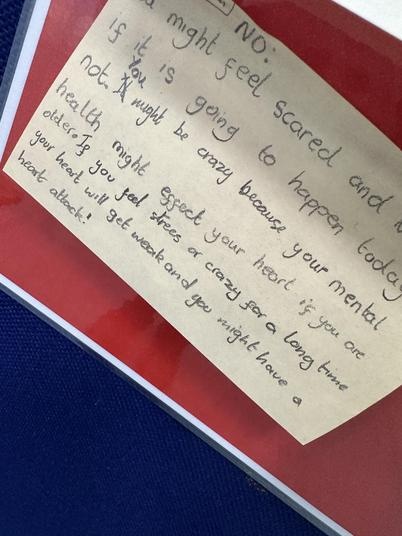 NO:
might feel scared and
If it is going to happen today
not. You might be crazy because your mental
health might effect your heart if you are
older. If you feel strees or crazy for a long time
your heart will get weak and you might have a
heart attack!